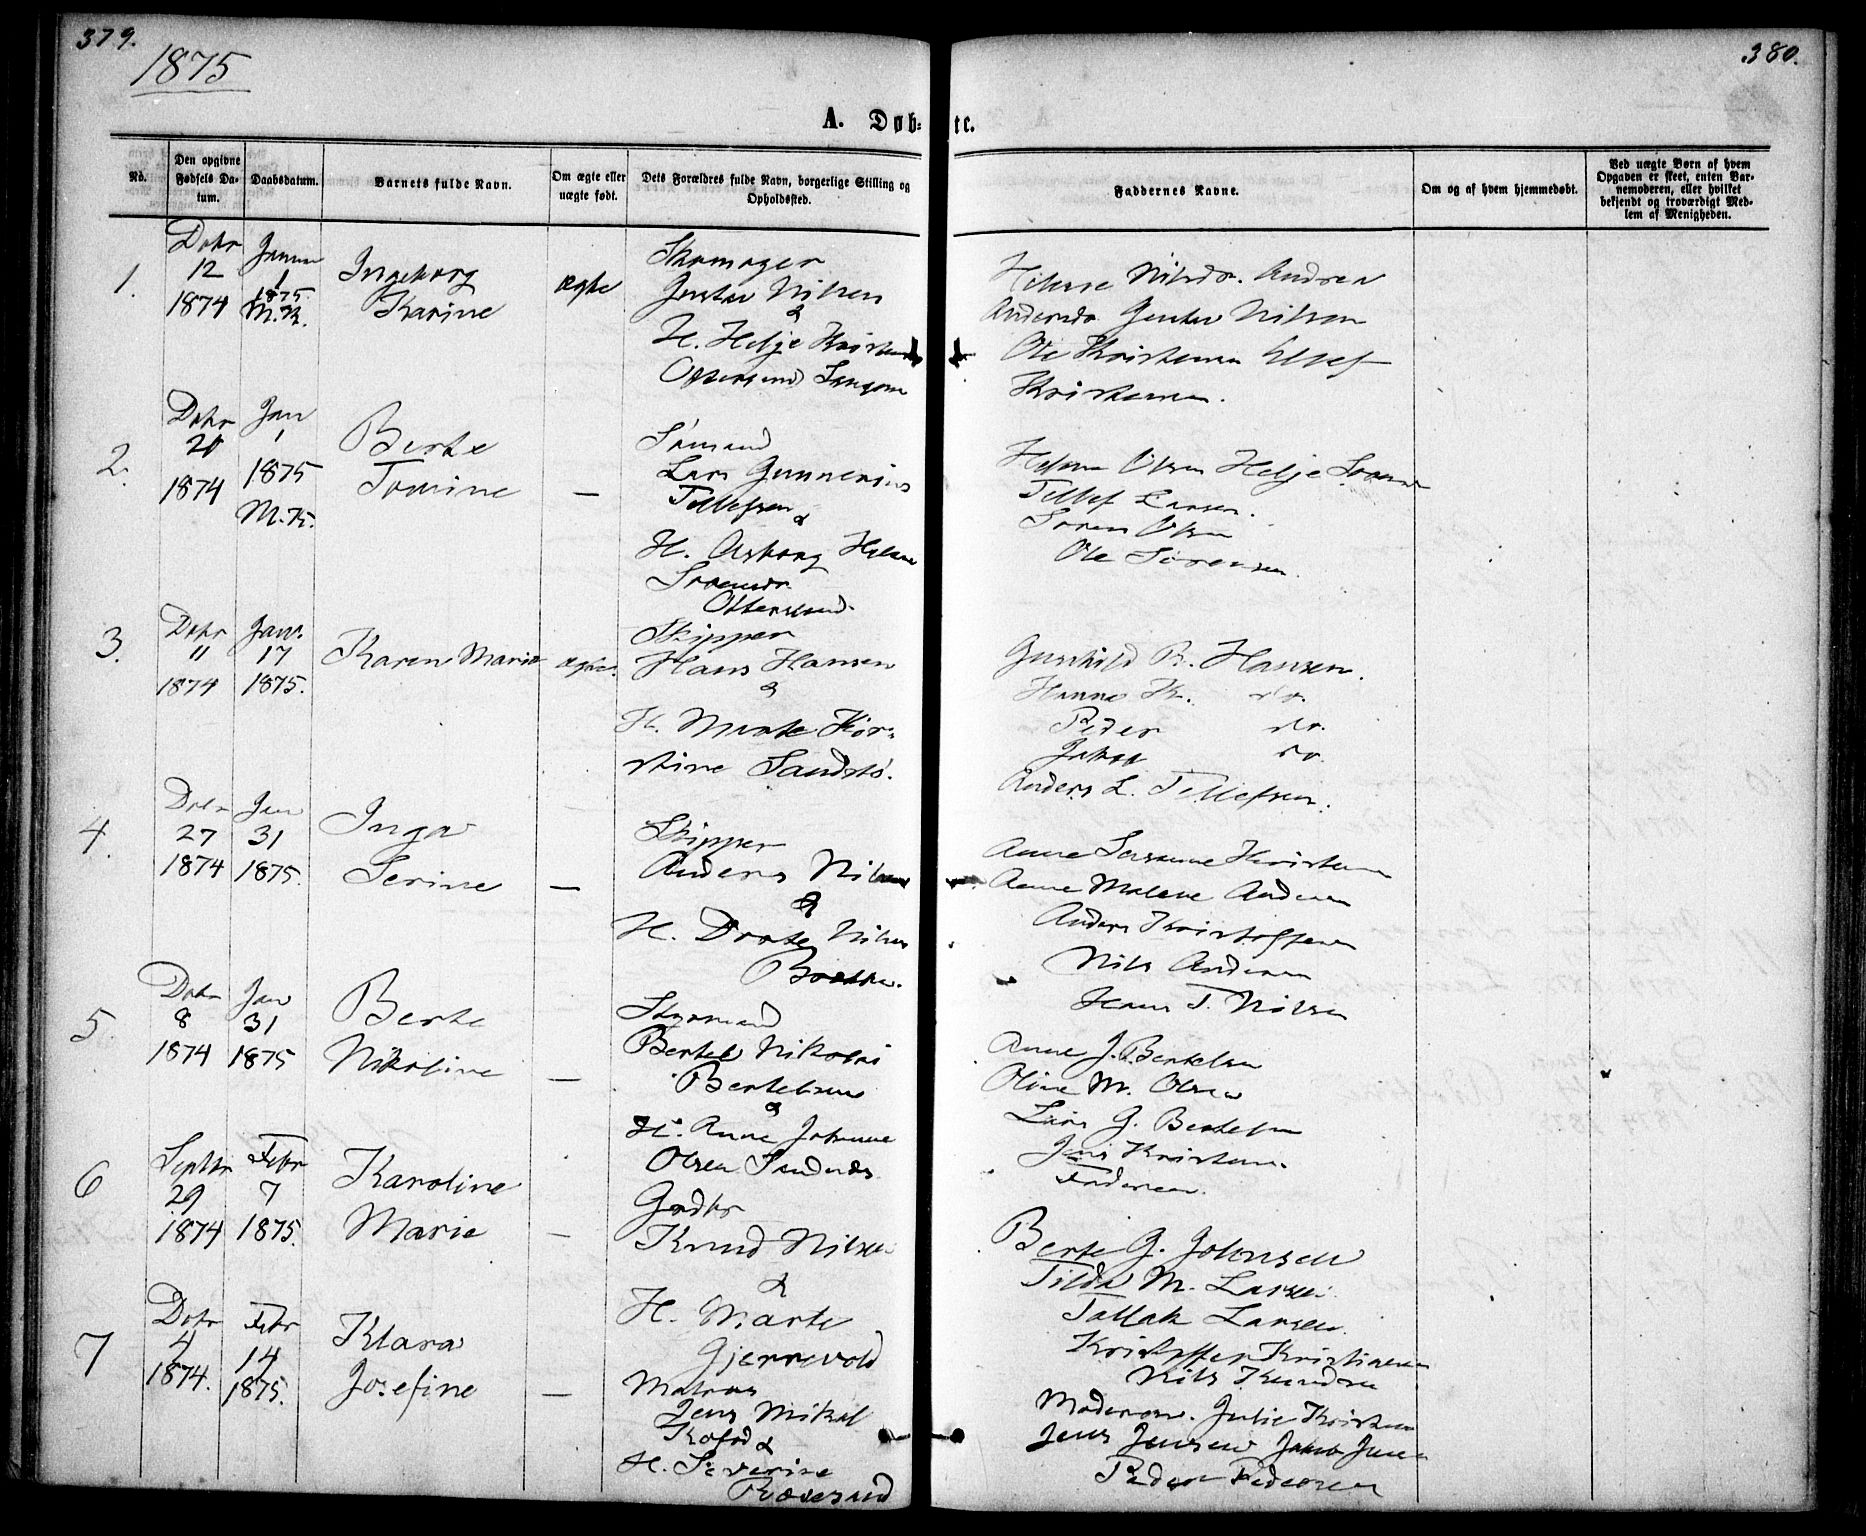 379.
380.
1875
A. Døb-
te.
No.
Den opgivne Fødsels Da-
tum.
Daabsdatum.
Barnets fulde Navn.
Om ægte eller
uægte født.
Dets Forældres fulde Navn, borgerlige Stilling og
Opholdssted.
Faddernes Navne.
Om og af hvem hjemmedøbt.
Ved uægte Børn af hvem
Opgaven er skeet, enten Bar-
nemoderen, eller hvilket
bekjendt og troværdigt Med-
lem af Menigheden.
1.
Debr
12
1874
Januar
1
1875.
M.K.
Ingeborg
Karine
ægte
Skomager
Gustav Nilsen
&
H. Helje Kristens
Andrea
Gustav Nilsen
Ole Kristensen
Kristensen.
2.
Debr
20
1874
Jan
1
1875
M.K.
Berte
Tomine
—
Sømand
Lars Gunnerius
Tellefsen
&
H. Asborg Helene
Sørensdr
Ottersund.
Helene Olsen Helje
Tellef Larsen.
Søren Olsen
Ole Sørensen.
3.
Debr
11
1874
Janr.
17
1875.
Karen Marie
ægte.
Skipper
Hans Hansen
&
H. Marte Kir-
stine Sandstø.
Gunhild B. Hansen.
Hanna K. do.
Peder do.
Jakob do.
Anders L. Tellefsen.
4.
Debr
27
1874
Jan
31
1875.
Inga
Serine
—
Skipper
Anders Nilsen
&
H. Dorte Nilsen
Anne Kristensen
Anne Malene Andersen
Anders Kristoffersen
Nils Andersen
Hans T. Nilsen
5.
Debr
8
1874
Jan
31
1875
Berte
Nikoline
—
Styrmand
Bertel Nikolai
Bertelsen
&
H. Anne Johanne
Olsen
Anne J. Bertelsen
Oline M. Olsen
Lars G. Bertelsen
Jens Kristensen.
6
Septbr
29
1874
Febr
7
1875.
Karoline
Marie
—
Gdbr
Knud Nilsen
&
H. Marte
Gjerrevold
Berte G. Johnsen
Tilda M. Larsen
Tallak Larsen.
Kristoffer Kristiansen
Nils Knudsen
7
Debr
4
1874.
Febr
14
1875.
Klara
Josefine
—
Matros
Jens Mikal
Kofod &
H. Severine
Rævesand
Moderen. Julie Kristensen
Jens Jensen Jakob Jensen
Peder Pedersen